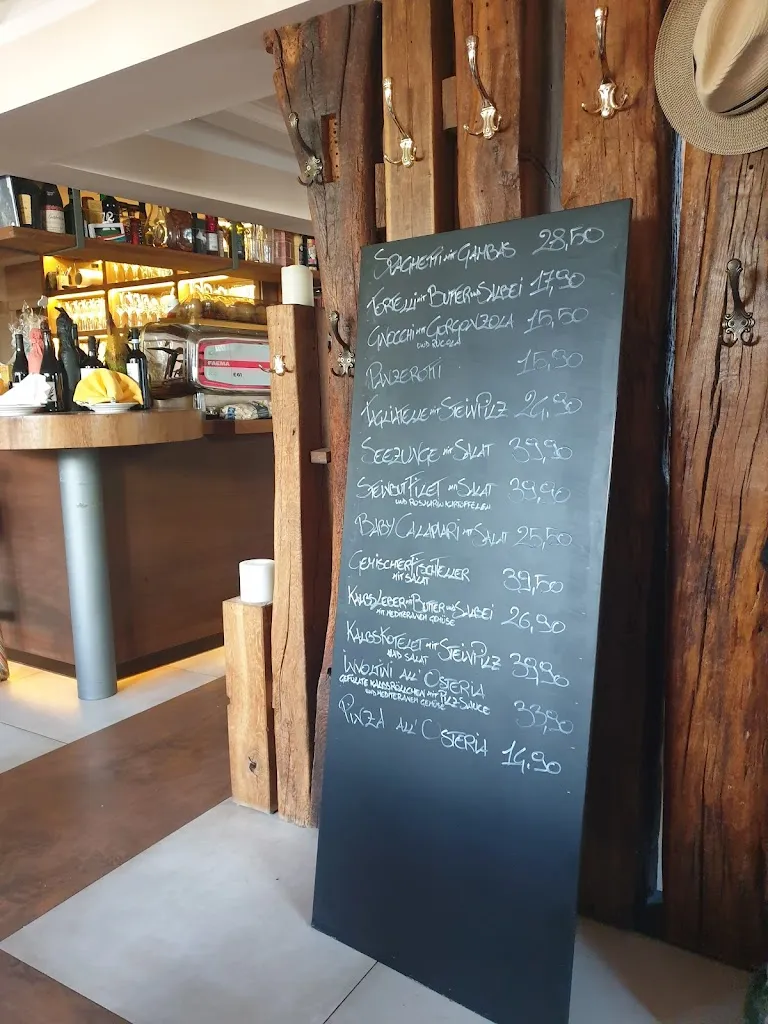 SPAGHETTI MIT GAMBAS 28,50
TORELLI MIT BUTTER UND SALBEI 17,90
GNOCCHI MIT GORGONZOLA 15,50
UND RUCOLA
PANZEROTTI 15,90
TAGLIATELLE MIT STEINPILZ 24,90
SEEZUNGE MIT SALAT 39,90
STEINBUTFILET MIT SALAT 39,90
UND ROSMARIN KARTOFFELEN
BABY CALAMARI MIT SALAT 25,50
GEMISCHTER FISCHTELLER 39,50
MIT SALAT
KALBSLEBER MIT BUTTER UND SALBEI 26,90
MIT MEDITERANEM GEMÜSE
KALBSKOTELET MIT STEINPILZ 39,90
UND SALAT
INVOLTINI ALL' OSTERIA
GEFÜLLTE KALBSRÖLLCHEN MIT PILZ-SAUCE 33,90
UND MEDITERANEM GEMÜSE
PINZA ALL' OSTERIA 14,90
FAEMA
E61